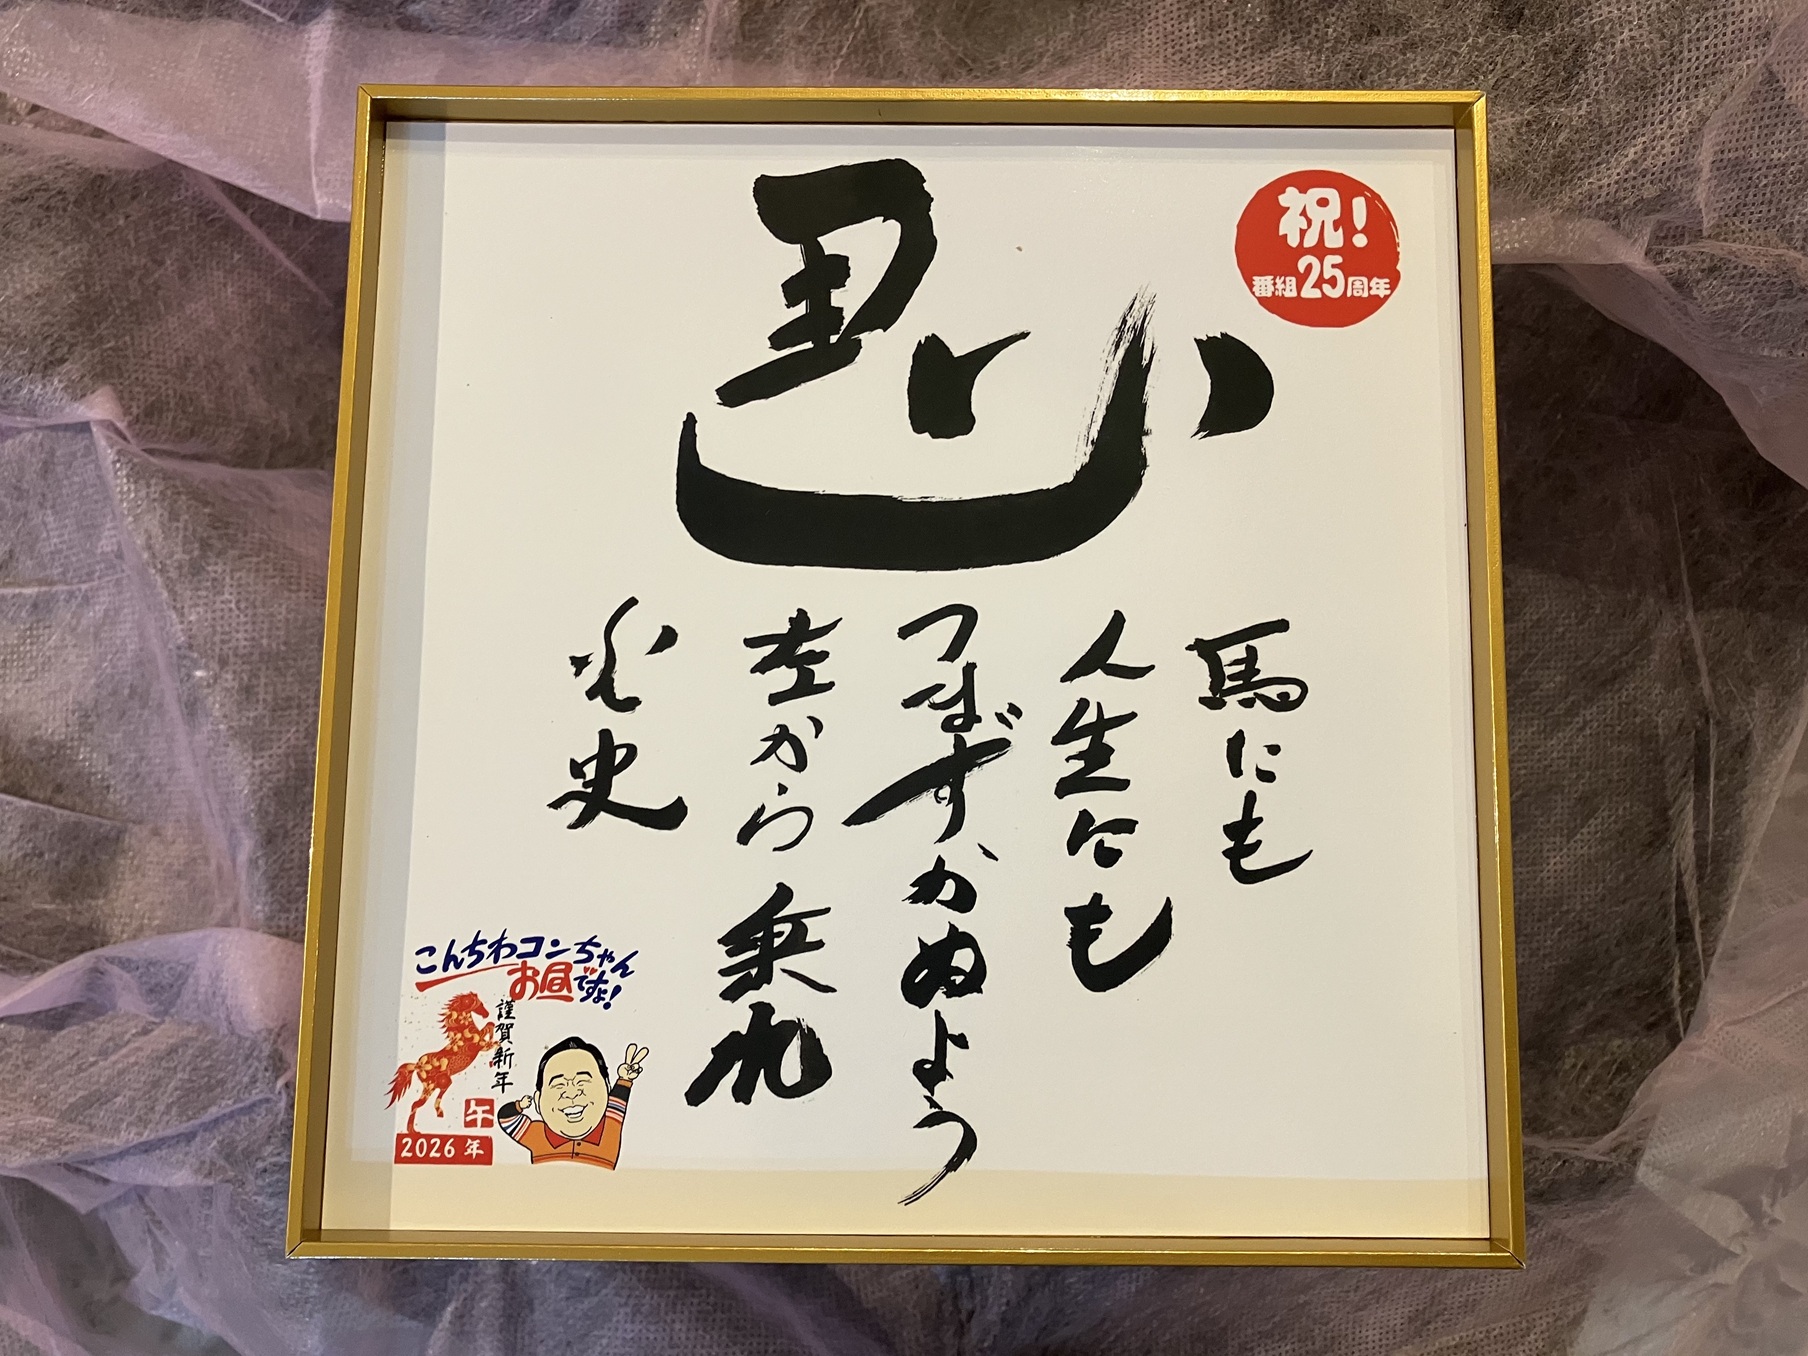 祝!
番組25周年
馬にも
人生にも
つまずかぬよう
左から乗れ
史
こんちわコンちゃん
お昼ですよ!
謹賀新年
午
2026年